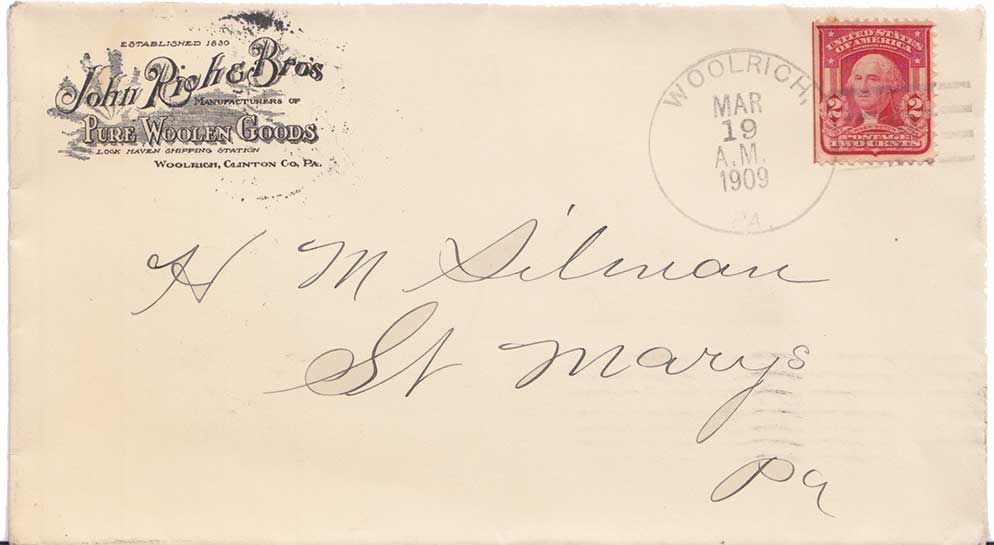 ESTABLISHED 1830
John Rich & Bros
MANUFACTURERS OF
PURE WOOLEN GOODS
LOCK HAVEN SHIPPING STATION
WOOLRICH, CLINTON CO. PA.
WOOLRICH,
MAR
19
A.M.
1909
PA.
UNITED STATES
OF AMERICA
2 2
WASHINGTON
POSTAGE
TWO CENTS
H M Silman
St Marys
Pa